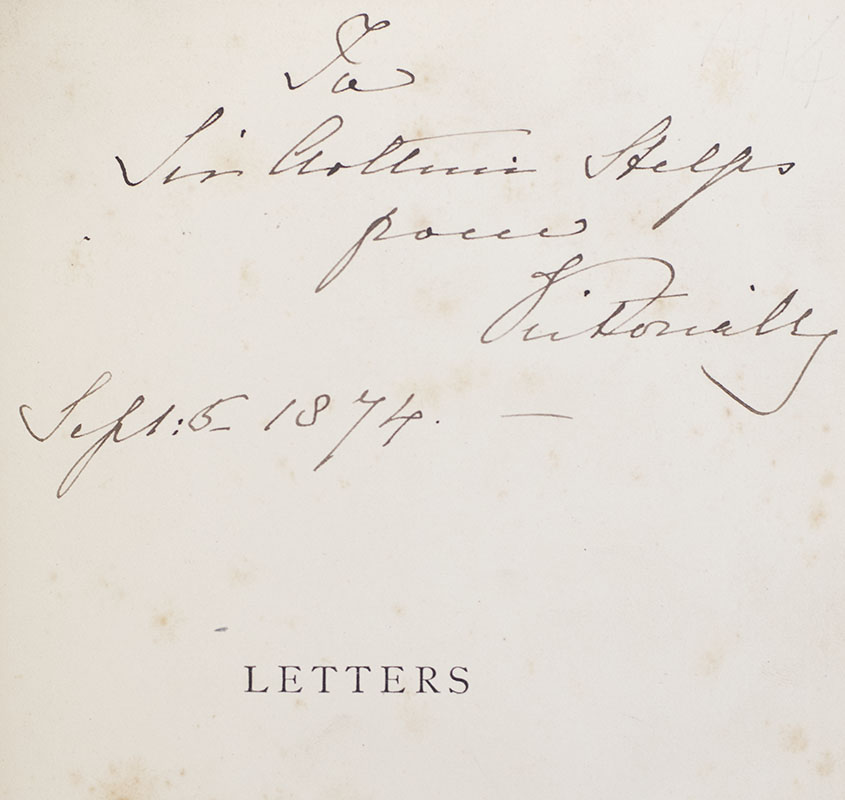 To
Sir Arthur Helps
from
Victoria R
Sept: 5 1874. —
LETTERS